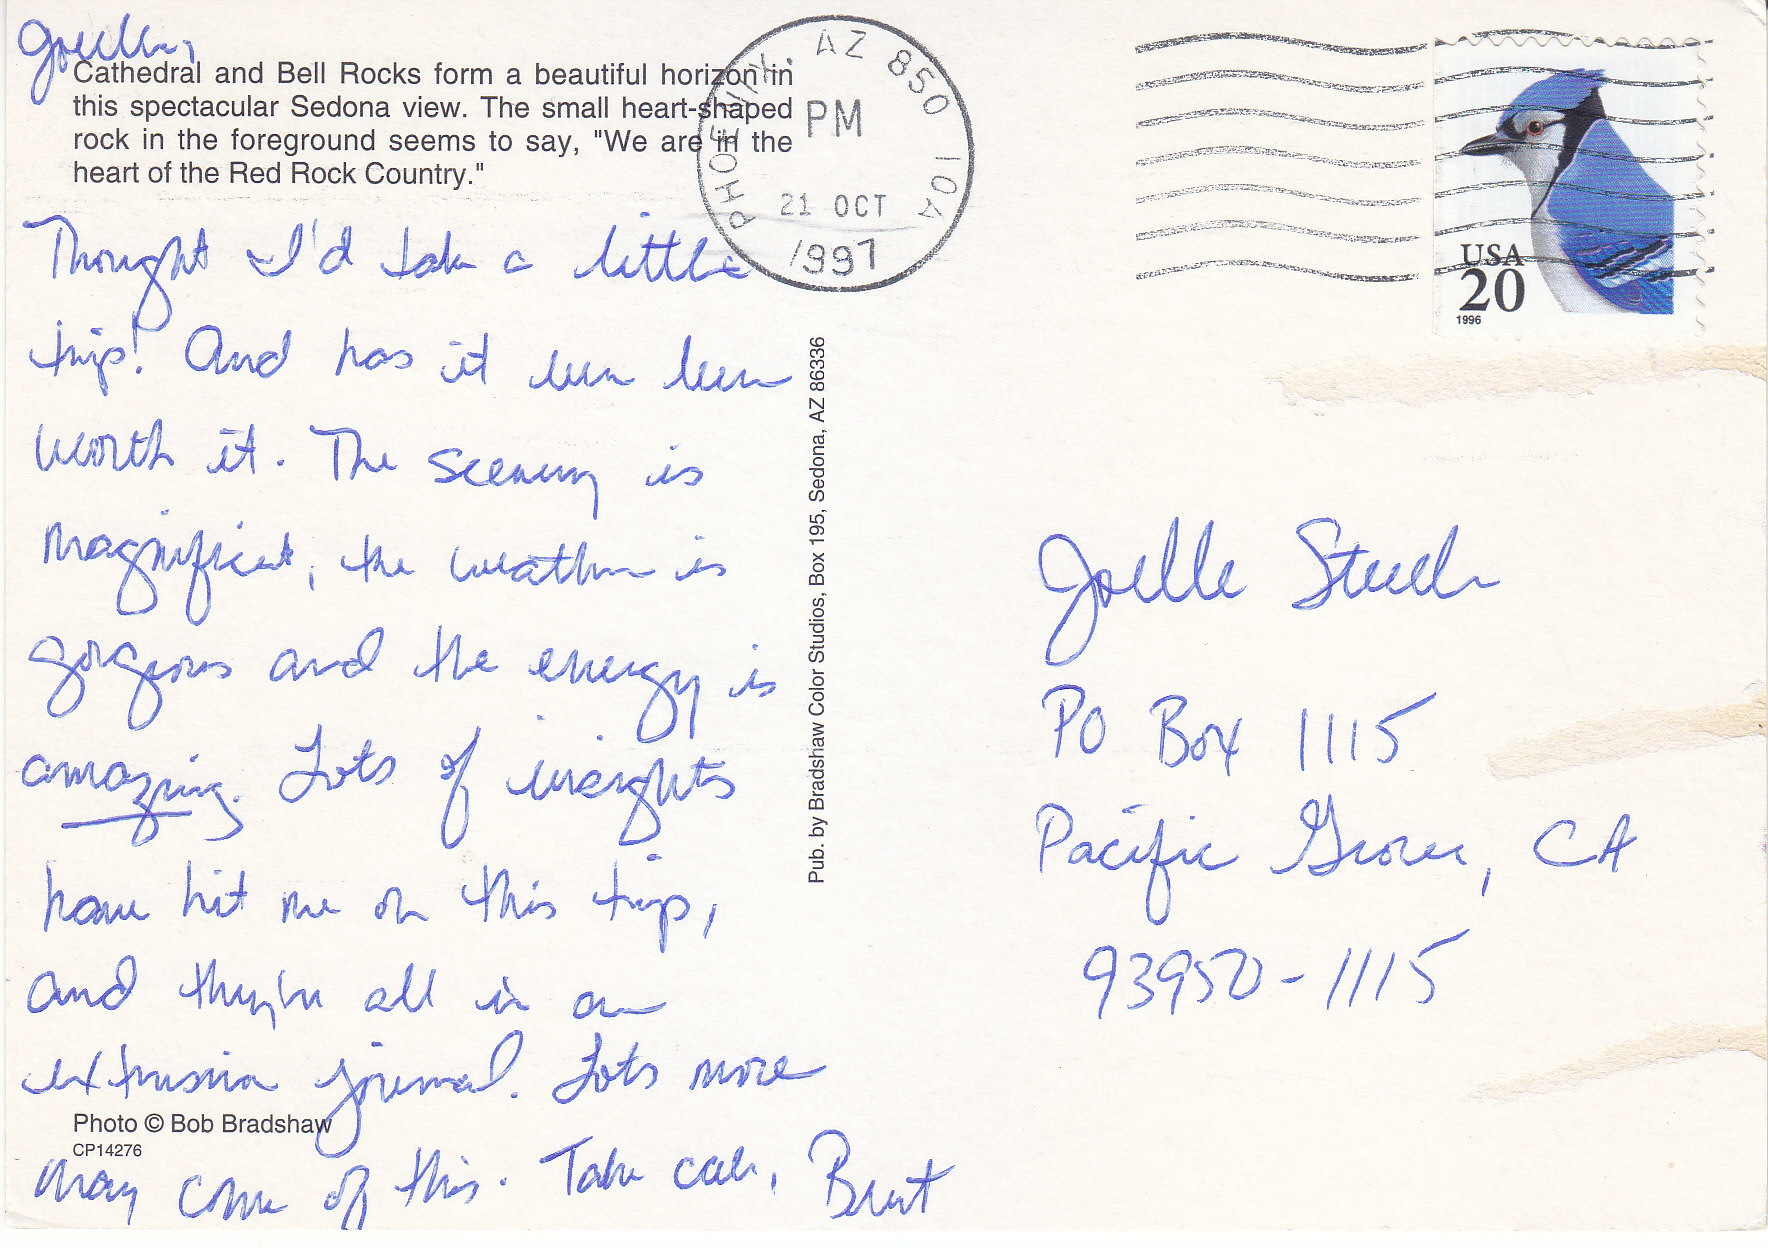 Joelle,
Cathedral and Bell Rocks form a beautiful horizon in
this spectacular Sedona view. The small heart-shaped
rock in the foreground seems to say, "We are in the
heart of the Red Rock Country."
Thought I'd take a little
trip! And has it ever been
worth it. The scenery is
magnificent, the weather is
gorgeous and the energy is
amazing. Lots of insights
have hit me on this trip,
and they're all in an
extensive journal. Lots more
may come of this. Take care, Brent
Photo © Bob Bradshaw
CP14276
Pub. by Bradshaw Color Studios, Box 195, Sedona, AZ 86336
PHOENIX, AZ 850 104
PM
21 OCT
1997
USA
20
1996
Joelle Steele
PO Box 1115
Pacific Grove, CA
93950-1115